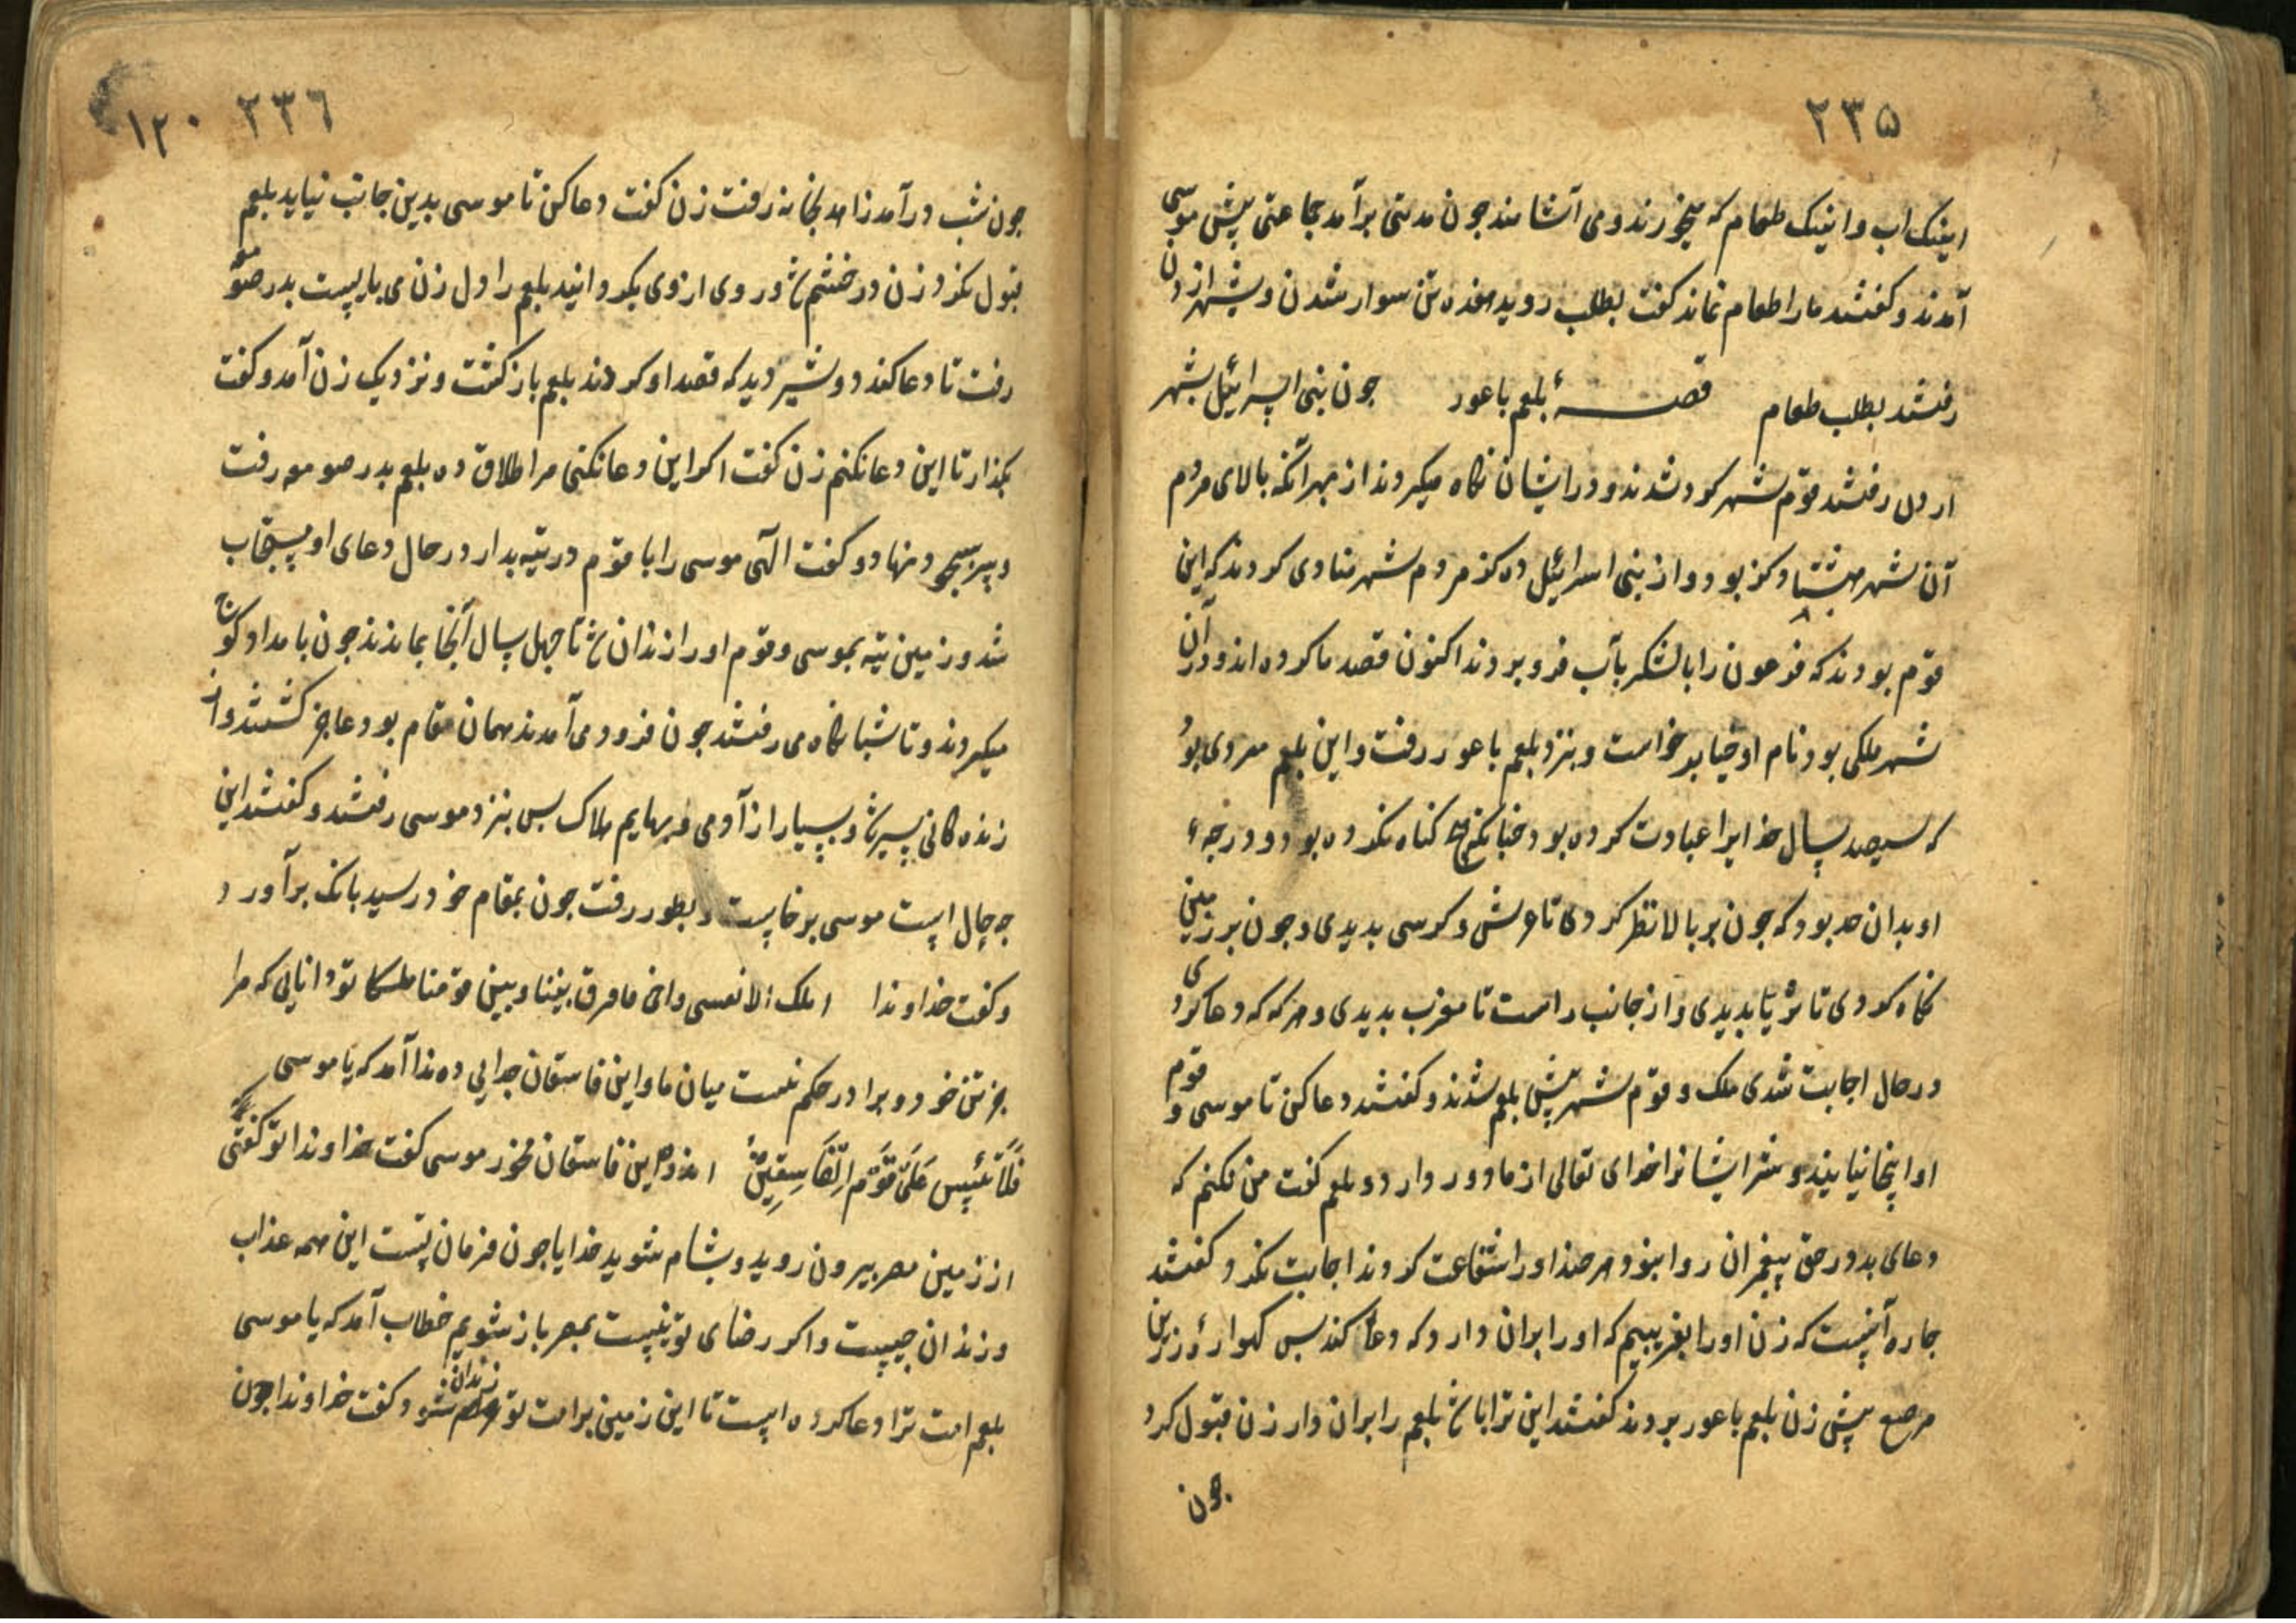 ۲۳۵
اینک اب و اینک طعام که میخورند و می آشامند جون مدتی برآمد جماعتی پیش موسی
آمدند و کفتند ما را طعام نماند کفت بطلب روید هفده تن سوار شدن و بشهر اردن
رفتند بطلب طعام قصهٔ بلعم باعور جون بنی اسرائیل بشهر
اردن رفتند قوم شهر کرد شدند و در ایشان نکاه میکردند از بهر آنکه بالای مردم
آن شهر هشتاد کز بود و از بنی اسرائیل ده کز مردم شهر منادی کردند که این
قوم بودند که فرعون را با لشکر بآب فرو بردند اکنون قصد ما کرده اند و در آن
شهر ملکی بود نام او برخواست و بنزد بلعم باعور رفت و این بلعم مردی بود
که سیصد سال خدایرا عبادت کرده بود جنانکه هیچ کناه نکرده بود و درجهٔ
او بدان حد بود که جون بر بالا نظر کردی تا عرش و کرسی بدیدی و جون بر زمین
نکاه کردی تا ثریا بدیدی و از جانب راست تا مغرب بدیدی و هر که که دعا کردی
در حال اجابت شدی ملک و قوم شهر پیش بلعم شدند و کفتند دعا کن تا موسی و قوم
او اینجا نیایند و شر ایشانرا خدای تعالی از ما دور دارد و بلعم کفت من نکنم که
دعای بد در حق پیغمبران روا نبود هر جند او را شفاعت کردند اجابت نکرد کفتند
جاره آنیست که زن او را بفریبیم که او را بران دارد که دعا کند بس کهوارهٔ زرین
مرصع پیش زن بلعم باعور بردند کفتند این ترا باش بلعم را بران دار زن قبول کرد
جون
۲۳۶ ۱۲۰
جون شب درآمد زاهد بخانه رفت زن کفت دعا کن تا موسی بدین جانب نیاید بلعم
قبول نکرد زن در خشم شد و روی از وی بکردانید بلعم را دل زن می بایست بدر صومعه
رفت تا دعا کند دو شیر دید که قصد او کردند بلعم باز کشت و نزدیک زن آمد و کفت
بکذار تا این دعا نکنم زن کفت اکر این دعا نکنی مرا طلاق ده بلعم بدر صومعه رفت
و سر بسجود نهاد و کفت الهی موسی را با قوم در تیه بدار در حال دعای او مستجاب
شد و زمین تیه بموسی و قوم او را زندان شد تا جهل سال آنجا بماندند جون بامداد کوج
میکردند و تا شبانکاه می رفتند جون فرود می آمدند همان مقام بود عاجز کشتند و از
زنده کانی سیر شد و بسیار از آدمی و بهایم هلاک بس بنزد موسی رفتند و کفتند این
جه حال است موسی برخاست و بطور رفت جون بمقام خود رسید بانک برآورد
و کفت خداوندا املک الا نفسی و اخی فافرق بیننا و بین تو دانایی که مرا
جز تن خود و برادر حکم نیست میان ما و این فاسقان جدایی ده ندا آمد که یا موسی
فَلَا تَیْئَس عَلَی قَوْمِ الْفَاسِقِینَ اندوه این فاسقان مخور موسی کفت خداوندا تو کفتی که
از زمین مصر بیرون روید و بشام شوید خدایا جون فرمان تست این همه عذاب
و زندان جیست و اکر رضای تو نیست بمصر باز شویم خطاب آمد که یا موسی
بلعم امت ترا دعا کرده است تا این زمین بر امت تو زندان شود کفت خداوندا جون